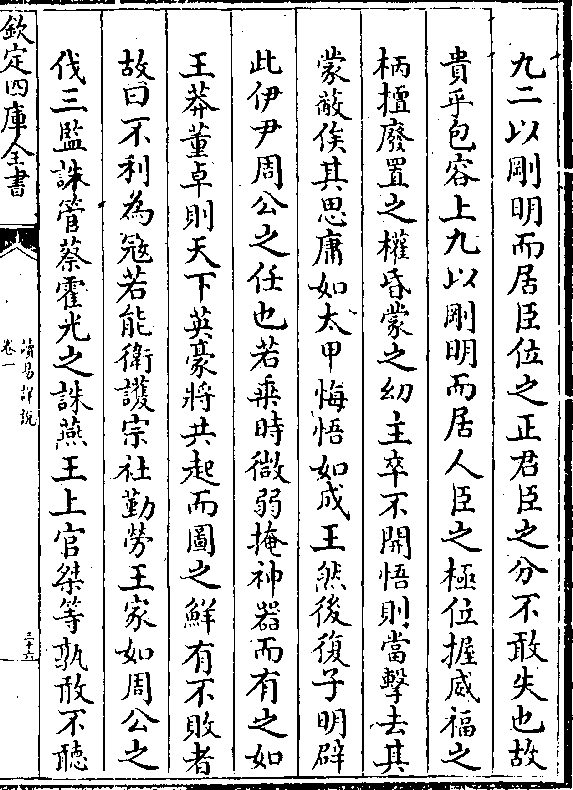 九二以剛明而居臣位之正君臣之分不敢失也故
貴乎包容上九以剛明而居人臣之極位握威福之
柄擅廢置之權昏蒙之幼主卒不開悟則當擊去其
蒙蔽俟其思庸如太甲悔悟如成王然後復子明辟
此伊尹周公之任也若乘時微弱掩神器而有之如
王莽董卓則天下英豪將共起而圖之鮮有不敗者
故曰不利為寇若能衛護宗社勤勞王家如周公之
伐三監誅管蔡霍光之誅燕王上官桀等孰敢不聽
欽定四庫全書
讀易詳說
卷一
三十五